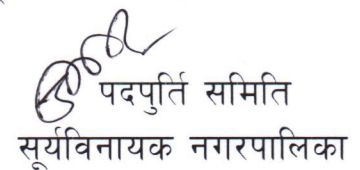 पदपुर्ति समिति
सूर्यविनायक नगरपालिका